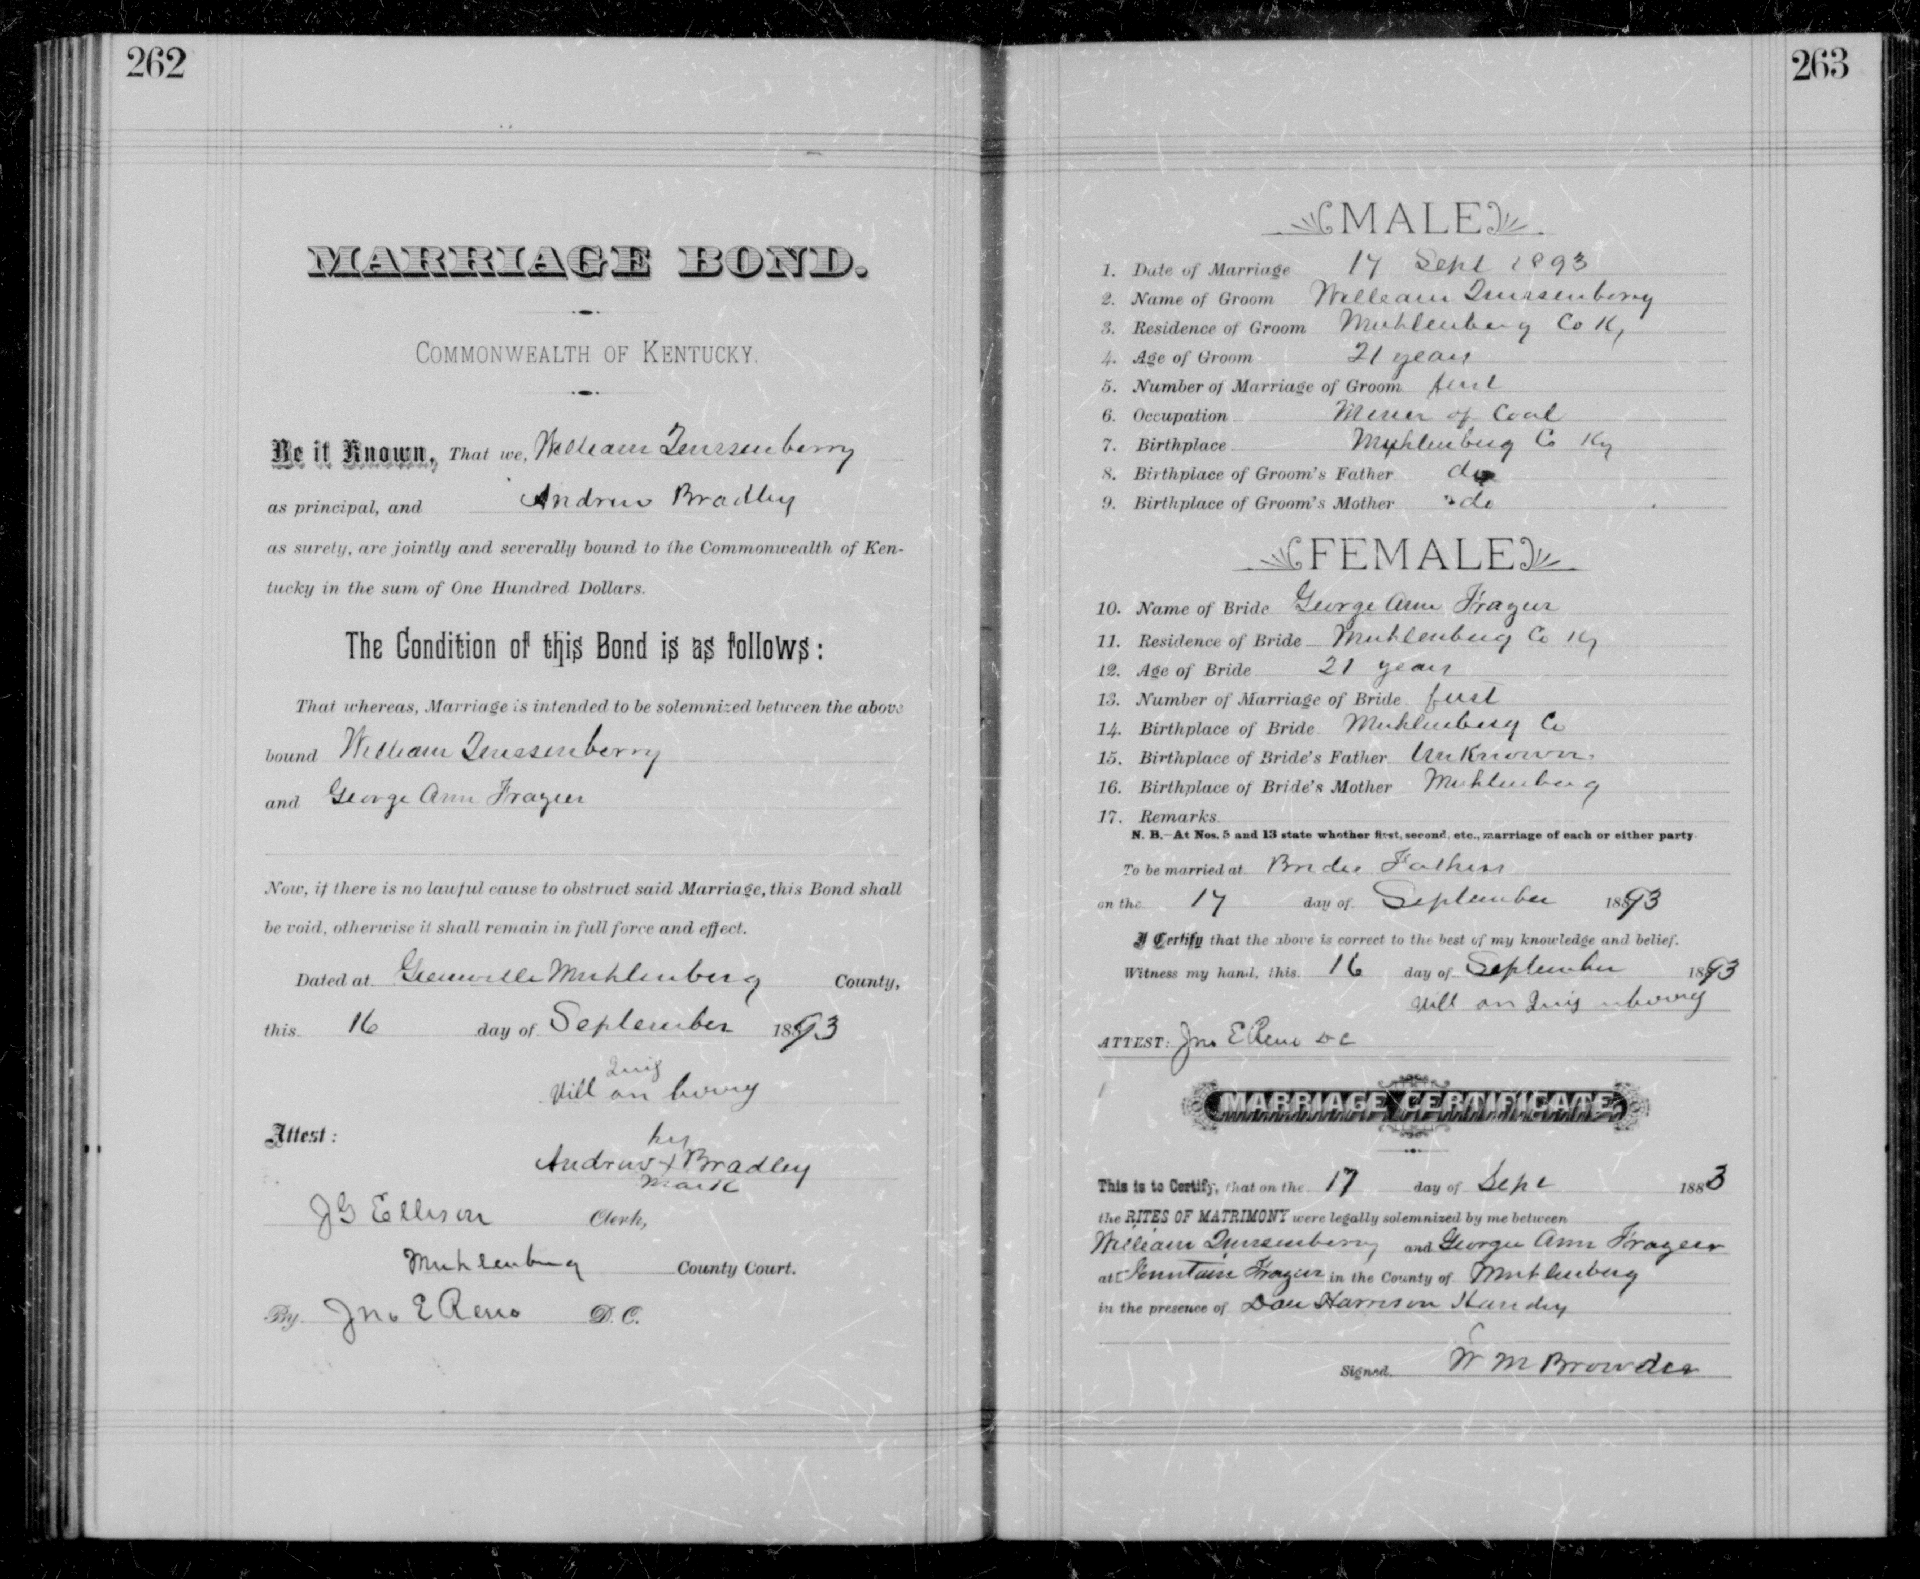 262
MARRIAGE BOND.
COMMONWEALTH OF KENTUCKY.
Be it Known, That we, William
as principal, and Andrew Bradley
as surety, are jointly and severally bound to the Commonwealth of Ken-
tucky in the sum of One Hundred Dollars.
The Condition of this Bond is as follows:
That whereas, Marriage is intended to be solemnized between the above
bound William
and George Ann Frazier
Now, if there is no lawful cause to obstruct said Marriage, this Bond shall
be void, otherwise it shall remain in full force and effect.
Dated at Greenville Muhlenberg County,
this 16 day of September 1893
Attest:
his
Andrew X Bradley
mark
J G Ellison Clerk,
Muhlenberg County Court.
By Jno E Reno D. C.
263
MALE
1. Date of Marriage 17 Sept 1893
2. Name of Groom William
3. Residence of Groom Muhlenberg Co Ky
4. Age of Groom 21 years
5. Number of Marriage of Groom first
6. Occupation Miner of Coal
7. Birthplace Muhlenberg Co Ky
8. Birthplace of Groom's Father do
9. Birthplace of Groom's Mother do
FEMALE
10. Name of Bride George Ann Frazier
11. Residence of Bride Muhlenberg Co Ky
12. Age of Bride 21 years
13. Number of Marriage of Bride first
14. Birthplace of Bride Muhlenberg Co
15. Birthplace of Bride's Father Unknown
16. Birthplace of Bride's Mother Muhlenberg
17. Remarks
N. B.—At Nos. 5 and 13 state whether first, second, etc., marriage of each or either party
To be married at Brides Fathers
on the 17 day of September 1893
I Certify that the above is correct to the best of my knowledge and belief.
Witness my hand, this 16 day of September 1893
ATTEST: Jno E Reno DC
MARRIAGE CERTIFICATE
This is to Certify, that on the 17 day of Sept 1883
the RITES OF MATRIMONY were legally solemnized by me between
William and Georgie Ann Frazier
at Fountain Frazier in the County of Muhlenberg
in the presence of Dan Harrison
Signed. W M Browder